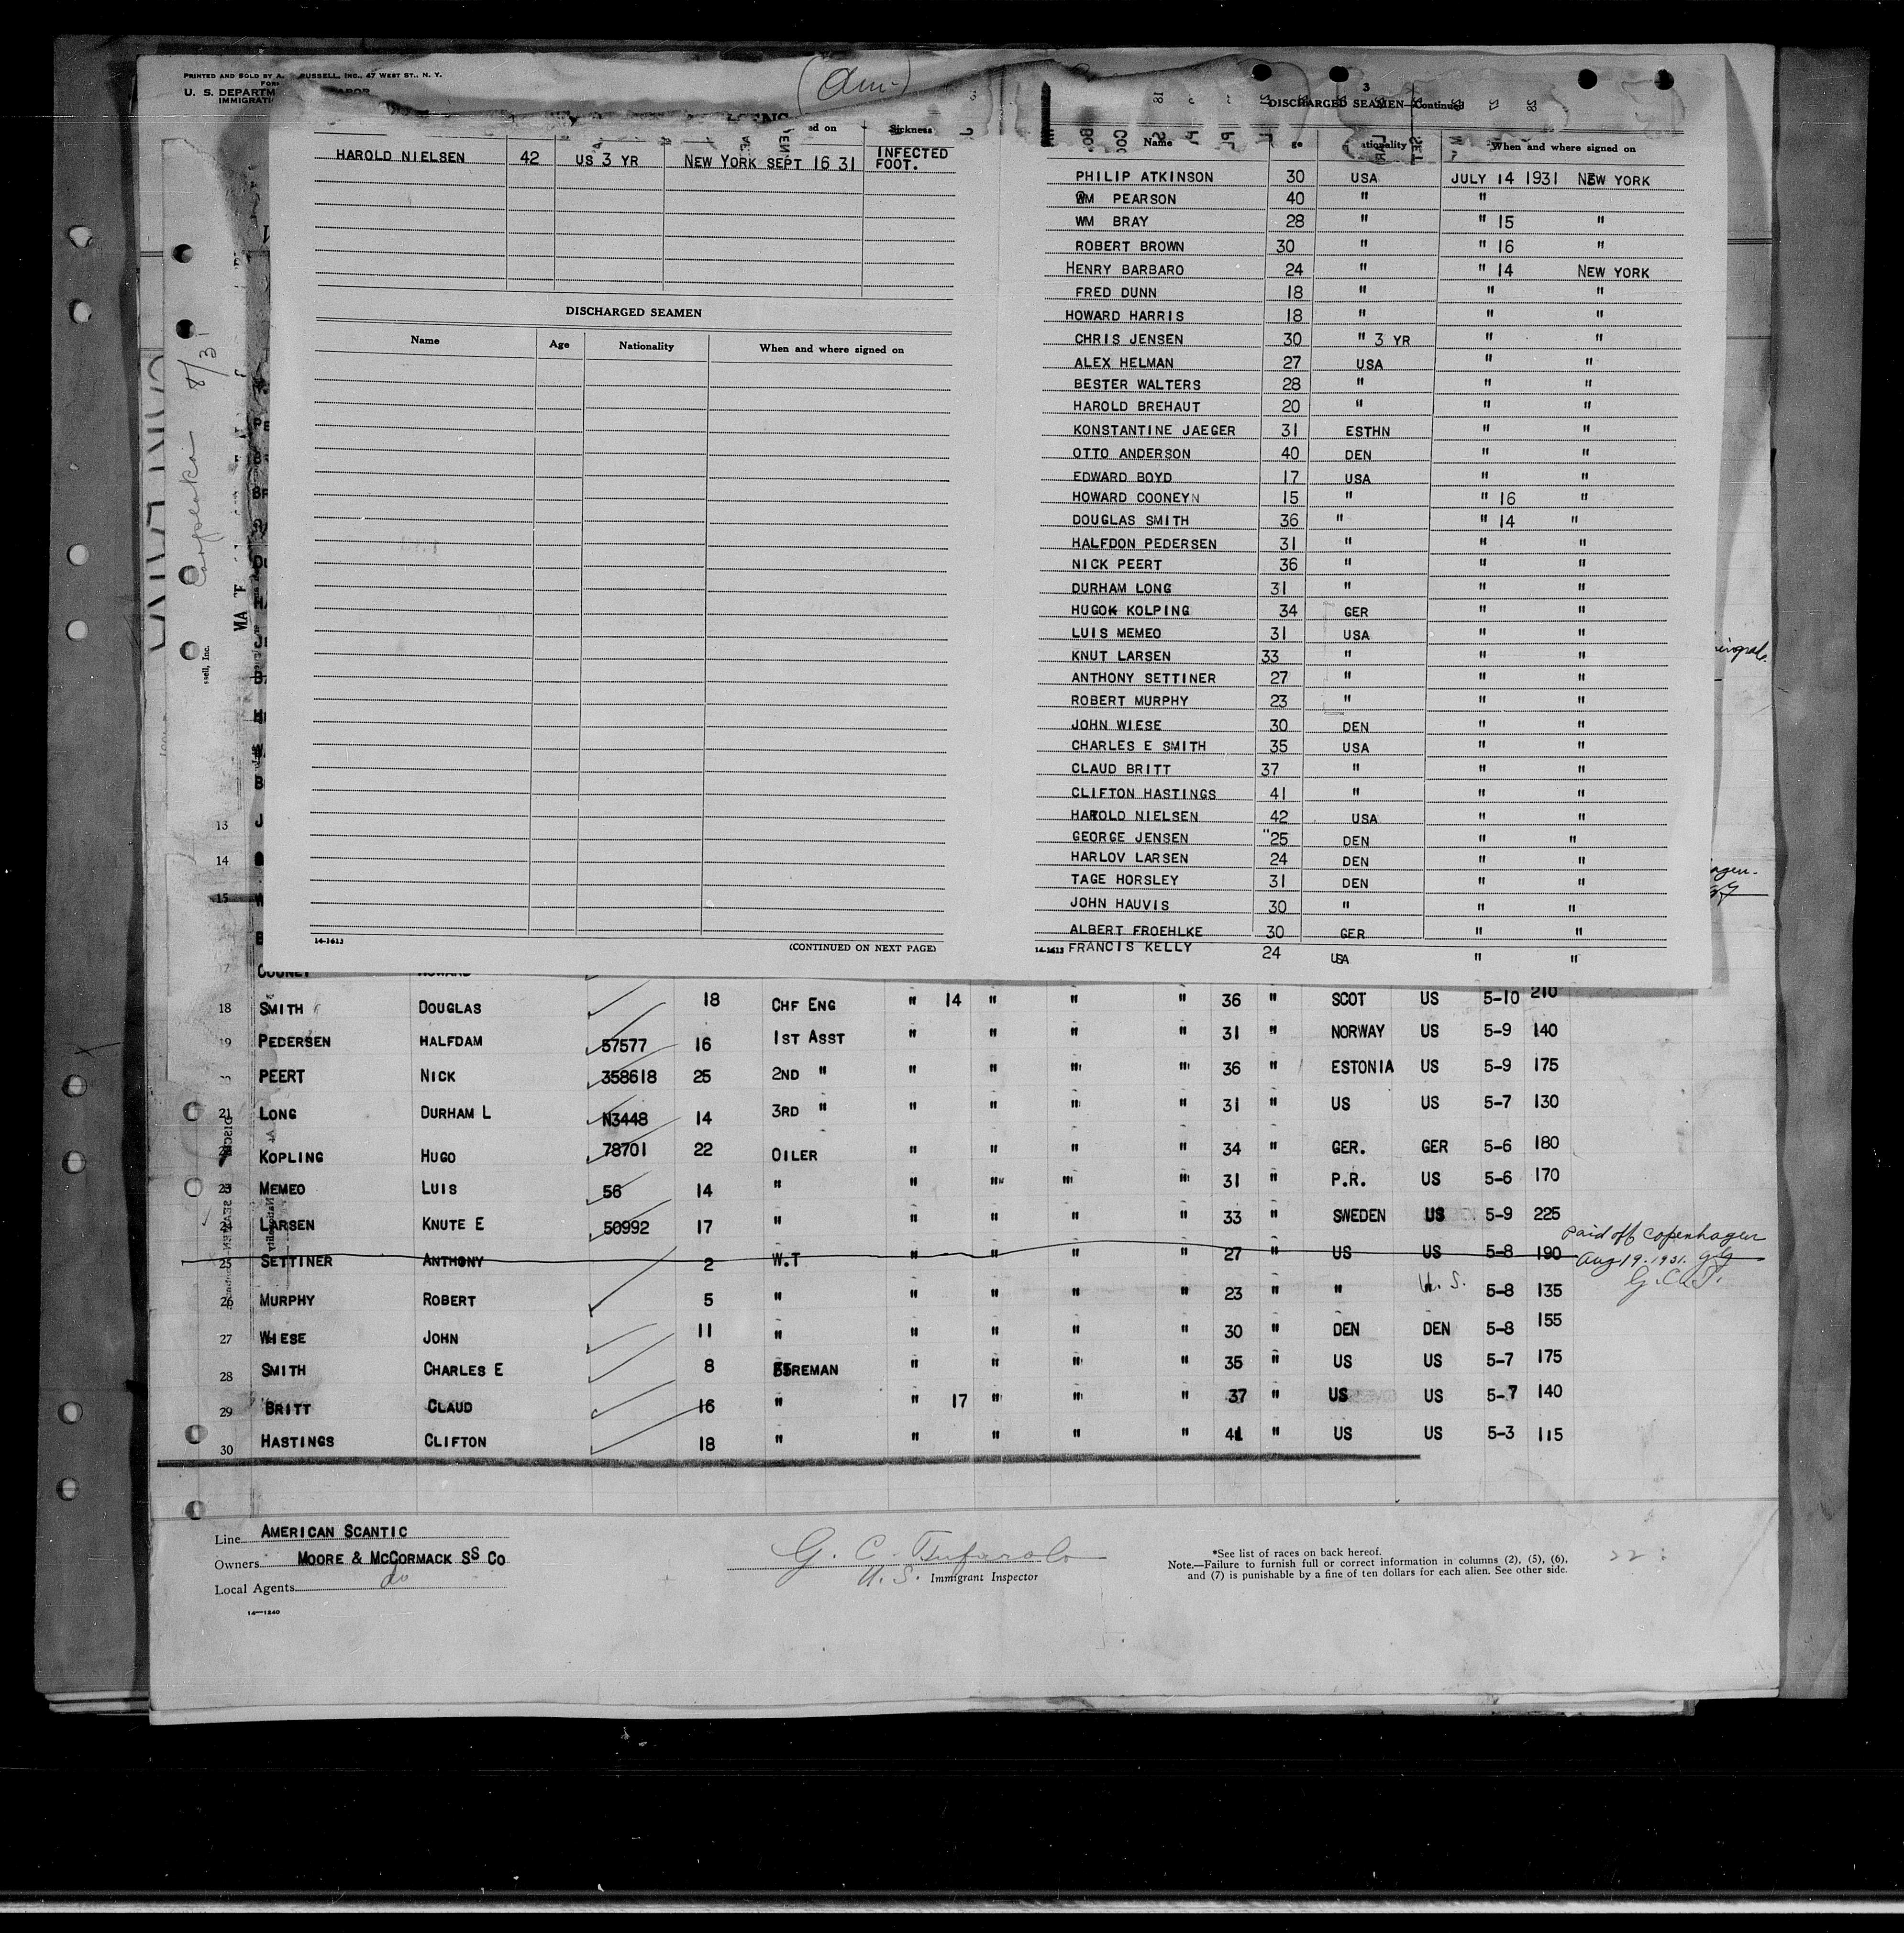 PRINTED AND SOLD BY A. RUSSELL, INC., 47 WEST ST., N. Y.
U. S. DEPARTM
IMMIGRATI
Sickness
HAROLD NIELSEN 42 US 3 YR NEW YORK SEPT 16 31 INFECTED FOOT.
DISCHARGED SEAMEN
Name Age Nationality When and where signed on
14-1613 (CONTINUED ON NEXT PAGE)
3
DISCHARGED SEAMEN—Continued
Name ge ationality When and where signed on
PHILIP ATKINSON 30 USA JULY 14 1931 NEW YORK
WM PEARSON 40 " "
WM BRAY 28 " " 15 "
ROBERT BROWN 30 " " 16 "
HENRY BARBARO 24 " " 14 NEW YORK
FRED DUNN 18 " " "
HOWARD HARRIS 18 " " "
CHRIS JENSEN 30 " 3 YR " "
ALEX HELMAN 27 USA " "
BESTER WALTERS 28 " " "
HAROLD BREHAUT 20 " " "
KONSTANTINE JAEGER 31 ESTHN " "
OTTO ANDERSON 40 DEN " "
EDWARD BOYD 17 USA " "
HOWARD COONEYN 15 " " 16 "
DOUGLAS SMITH 36 " " 14 "
HALFDON PEDERSEN 31 " " "
NICK PEERT 36 " " "
DURHAM LONG 31 " " "
HUGOK KOLPING 34 GER " "
LUIS MEMEO 31 USA " "
KNUT LARSEN 33 " " "
ANTHONY SETTINER 27 " " "
ROBERT MURPHY 23 " " "
JOHN WIESE 30 DEN " "
CHARLES E SMITH 35 USA " "
CLAUD BRITT 37 " " "
CLIFTON HASTINGS 41 " " "
HAROLD NIELSEN 42 USA " "
GEORGE JENSEN "25 DEN " "
HARLOV LARSEN 24 DEN " "
TAGE HORSLEY 31 DEN " "
JOHN HAUVIS 30 " " "
ALBERT FROEHLKE 30 GER " "
14-1613 FRANCIS KELLY 24 USA " "
13
14
15
18 SMITH DOUGLAS 18 CHF ENG " 14 " " " 36 " SCOT US 5-10 210
19 PEDERSEN HALFDAM 57577 16 1ST ASST " " " " 31 " NORWAY US 5-9 140
PEERT NICK 358618 25 2ND " " " " " 36 " ESTONIA US 5-9 175
21 LONG DURHAM L N3448 14 3RD " " " " " 31 " US US 5-7 130
KOPLING HUGO 78701 22 OILER " " " " 34 " GER. GER 5-6 180
23 MEMEO LUIS 56 14 " " " " " 31 " P.R. US 5-6 170
24 LARSEN KNUTE E 50992 17 " " " " " 33 " SWEDEN US 5-9 225
25 SETTINER ANTHONY 2 W.T " " " " 27 " US US 5-8 190 Paid off Copenhagen Aug 19. 1931.
26 MURPHY ROBERT 5 " " " " " 23 " " U.S. 5-8 135
27 WIESE JOHN 11 " " " " " 30 " DEN DEN 5-8 155
28 SMITH CHARLES E 8 FIREMAN " " " " 35 " US US 5-7 175
29 BRITT CLAUD 16 " " 17 " " " 37 " US US 5-7 140
30 HASTINGS CLIFTON 18 " " " " " 41 " US US 5-3 115
Line AMERICAN SCANTIC
Owners MOORE & MCCORMACK SS CO
Local Agents do
U. S. Immigrant Inspector
*See list of races on back hereof.
Note.—Failure to furnish full or correct information in columns (2), (5), (6),
and (7) is punishable by a fine of ten dollars for each alien. See other side.
14—1240